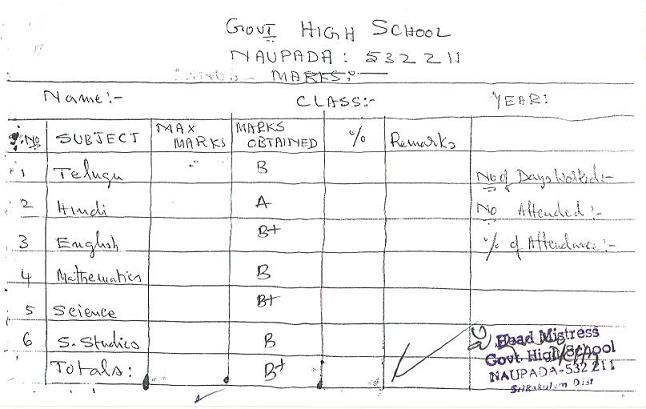 GOVT HIGH SCHOOL
NAUPADA: 532 211
MARKS:-
Name:- CLASS:- YEAR:
S.No SUBJECT MAX MARKS MARKS OBTAINED % Remarks
1 Telugu B No of Days Worked:-
2 Hindi A No Attended:-
3 English B+ % of Attendance:-
4 Mathematics B
5 Science B+
6 S. Studies B
Totals: B+
Head Mistress
Govt. High School
NAUPADA-532 211
Srikakulam Dist